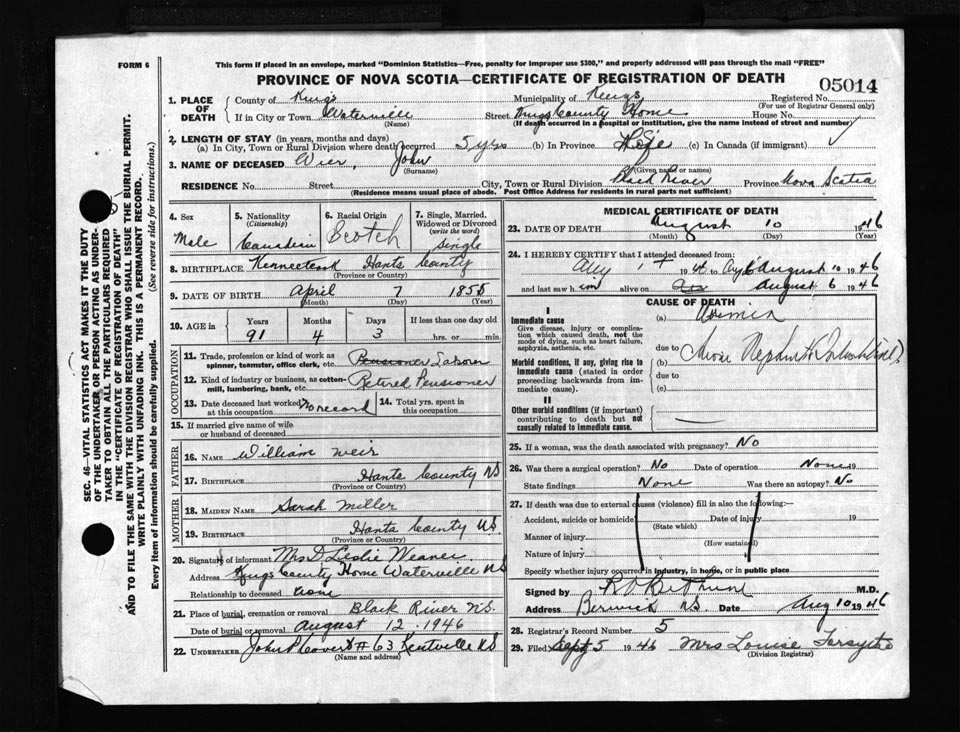 FORM 6
This form if placed in an envelope, marked "Dominion Statistics—Free, penalty for improper use $300," and properly addressed will pass through the mail "FREE"
PROVINCE OF NOVA SCOTIA—CERTIFICATE OF REGISTRATION OF DEATH
05014
1. PLACE OF DEATH
County of Kings Municipality of Kings Registered No.
(For use of Registrar General only)
If in City or Town Waterville Street Kings County Home House No.
(Name) (If death occurred in a hospital or institution, give the name instead of street and number)
2. LENGTH OF STAY (in years, months and days)
(a) In City, Town or Rural Division where death occurred 5 yrs (b) In Province Life (c) In Canada (if immigrant)
3. NAME OF DECEASED Wier, John
(Surname) (Given name or names)
RESIDENCE No. Street City, Town or Rural Division Black River Province Nova Scotia
(Residence means usual place of abode. Post Office Address for residents in rural parts not sufficient)
4. Sex
Male
5. Nationality
(Citizenship)
Canadian
6. Racial Origin
Scotch
7. Single, Married, Widowed or Divorced
(write the word)
Single
8. BIRTHPLACE Kennetcook Hants County
(Province or Country)
9. DATE OF BIRTH April 7 1855
(Month) (Day) (Year)
10. AGE in
Years Months Days If less than one day old
91 4 3 hrs. or min.
OCCUPATION
11. Trade, profession or kind of work as spinner, teamster, office clerk, etc. Pensioner Labour
12. Kind of industry or business, as cotton-mill, lumbering, bank, etc. Retired Pensioner
13. Date deceased last worked at this occupation No record
14. Total yrs. spent in this occupation
15. If married give name of wife or husband of deceased
FATHER
16. NAME William Weir
17. BIRTHPLACE Hants County NS
(Province or Country)
MOTHER
18. MAIDEN NAME Sarah Miller
19. BIRTHPLACE Hants County NS.
(Province or Country)
20. Signature of informant Mrs D Leslie Weaver
Address Kings County Home Waterville NS
Relationship to deceased none
21. Place of burial, cremation or removal Black River N.S.
Date of burial or removal August 12, 1946
22. UNDERTAKER John P 63 Kentville NS
(Name and address)
MEDICAL CERTIFICATE OF DEATH
23. DATE OF DEATH August 10 1946
(Month) (Day) (Year)
24. I HEREBY CERTIFY that I attended deceased from:
19 to August 10 1946
and last saw him alive on August 6 1946
CAUSE OF DEATH
I
Immediate cause
Give disease, injury or complication which caused death, not the mode of dying, such as heart failure, asphyxia, asthenia, etc.
(a) Uremia
due to
Morbid conditions, if any, giving rise to immediate cause (stated in order proceeding backwards from immediate cause).
(b)
due to
(c)
II
Other morbid conditions (if important) contributing to death but not causally related to immediate cause.
25. If a woman, was the death associated with pregnancy? No
26. Was there a surgical operation? No Date of operation None 19
State findings None Was there an autopsy? No
27. If death was due to external causes (violence) fill in also the following:—
Accident, suicide or homicide Date of injury 19
(State which)
Manner of injury
(How sustained)
Nature of injury
Specify whether injury occurred in industry, in home, or in public place
Signed by R O Bethune M.D.
Address Berwick N.S. Date Aug 10 1946
28. Registrar's Record Number 5
29. Filed Sept 5 1946 Mrs Louise Forsythe
(Division Registrar)
SEC. 46—VITAL STATISTICS ACT MAKES IT THE DUTY
OF THE UNDERTAKER OR PERSON ACTING AS UNDERTAKER
TO OBTAIN ALL THE PARTICULARS REQUIRED
IN THE "CERTIFICATE OF REGISTRATION OF DEATH"
AND TO FILE THE SAME WITH THE DIVISION REGISTRAR WHO SHALL ISSUE THE BURIAL PERMIT.
WRITE PLAINLY WITH UNFADING INK. THIS IS A PERMANENT RECORD.
Every item of information should be carefully supplied. (See reverse side for instructions.)